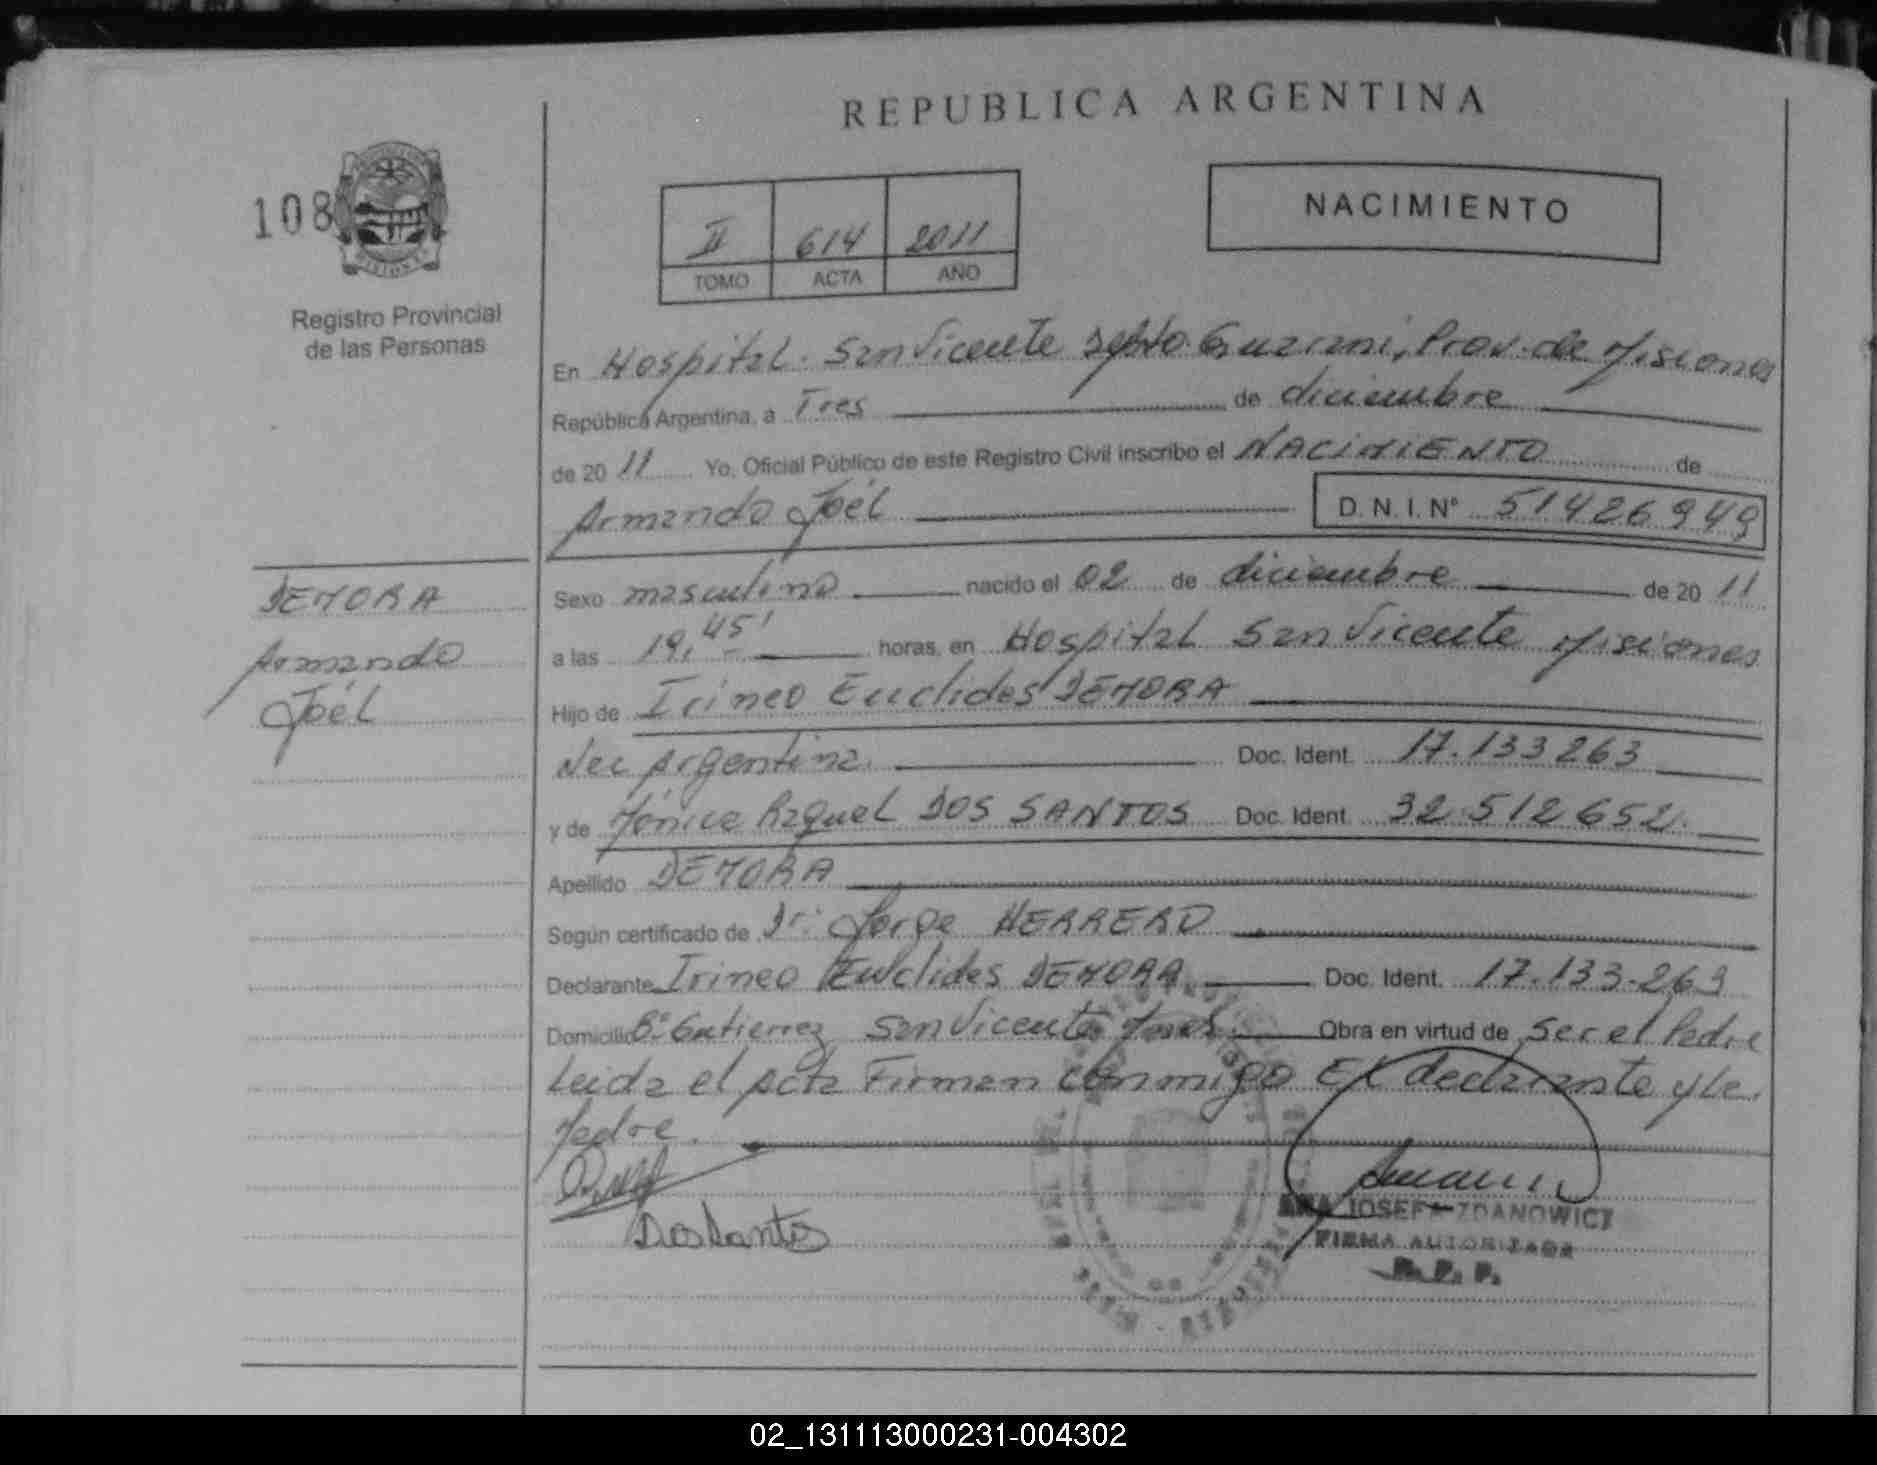 REPUBLICA ARGENTINA
108
NACIMIENTO
II 614 2011
TOMO ACTA AÑO
Registro Provincial
de las Personas
En Hospital. San Vicente Dpto Guarani, Prov. de Misiones
República Argentina, a Tres de diciembre
de 20 11 Yo, Oficial Público de este Registro Civil inscribo el NACIMIENTO de
Armando Joél D. N. I. Nº 51426949
DEMORA
Armando
Joél
Sexo masculino nacido el 02 de diciembre de 20 11
a las 19,45' horas, en Hospital San Vicente Misiones
Hijo de Irineo Euclides DEMORA
Nac Argentina. Doc. Ident. 17.133263
y de Mónica Raquel DOS SANTOS Doc. Ident. 32.512652.
Apellido DEMORA
Según certificado de Dr. Jorge HERRERO
Declarante Irineo Euclides DEMORA Doc. Ident. 17.133.263
Domicilio Bº Gutierrez San Vicente Mnes. Obra en virtud de Ser el Padre
Leida el Acta Firman conmigo El declarante y la
Madre.
Dos Santos
ANA JOSEFA ZDANOWICZ
FIRMA AUTORIZADA
R. P. P.
02_131113000231-004302